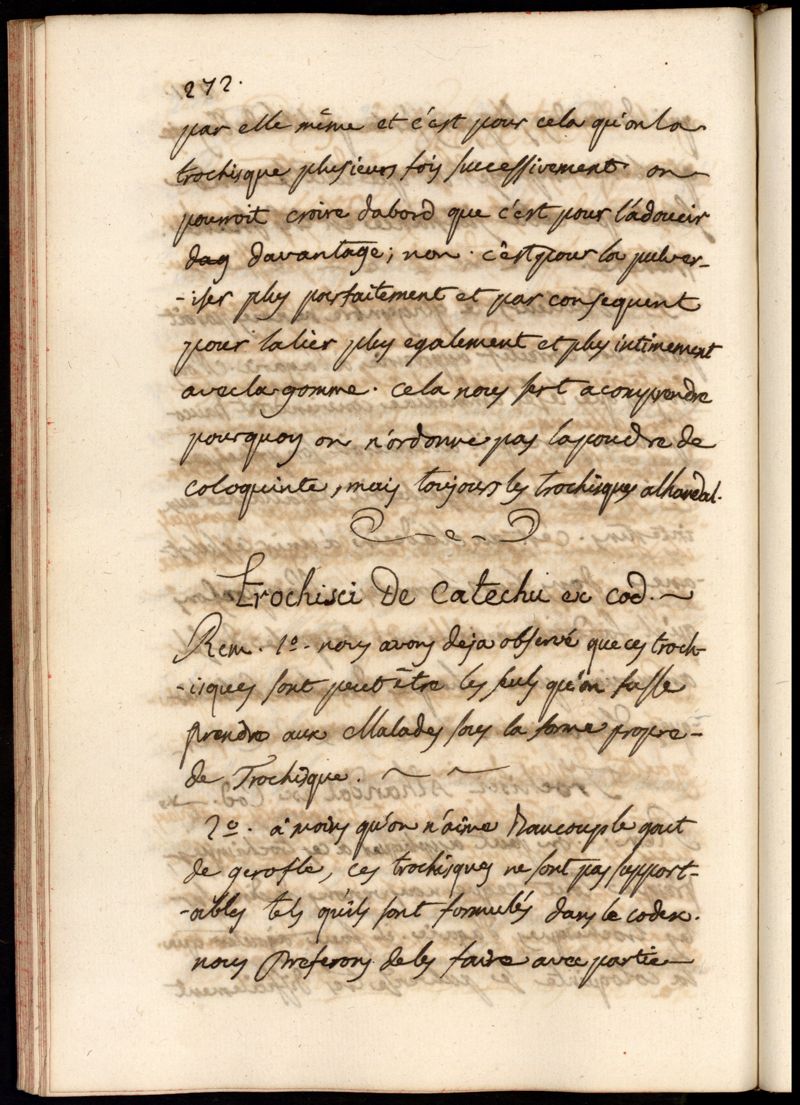 272.
par elle même et c'est pour cela qu'on la
trochisque plusieurs fois successivement. on
pourroit croire dabord que c'est pour l'adoucir
dag davantage; non. c'est pour la pulver-
-iser plus parfaitement et par consequent
pour la lier plus egalement et plus intimement
avec la gomme. cela nous sert a comprendre
pourquoy on n'ordonne pas la poudre de
coloquinte, mais toujours les trochisques alhandal.
Trochisci De Catechu ex cod.
Rem. 1º. nous avons deja observé que ces troch-
-isques sont peut être les seuls qu'on fasse
prendre aux Malades sous la forme propre-
de Trochisque.
2º. a moins qu'on n'aime Baucoup le gout
de gerofle, ces trochisques ne sont pas support-
-ables tels qu'ils sont formulés dans le codex.
nous Preferons de les faire avec partie